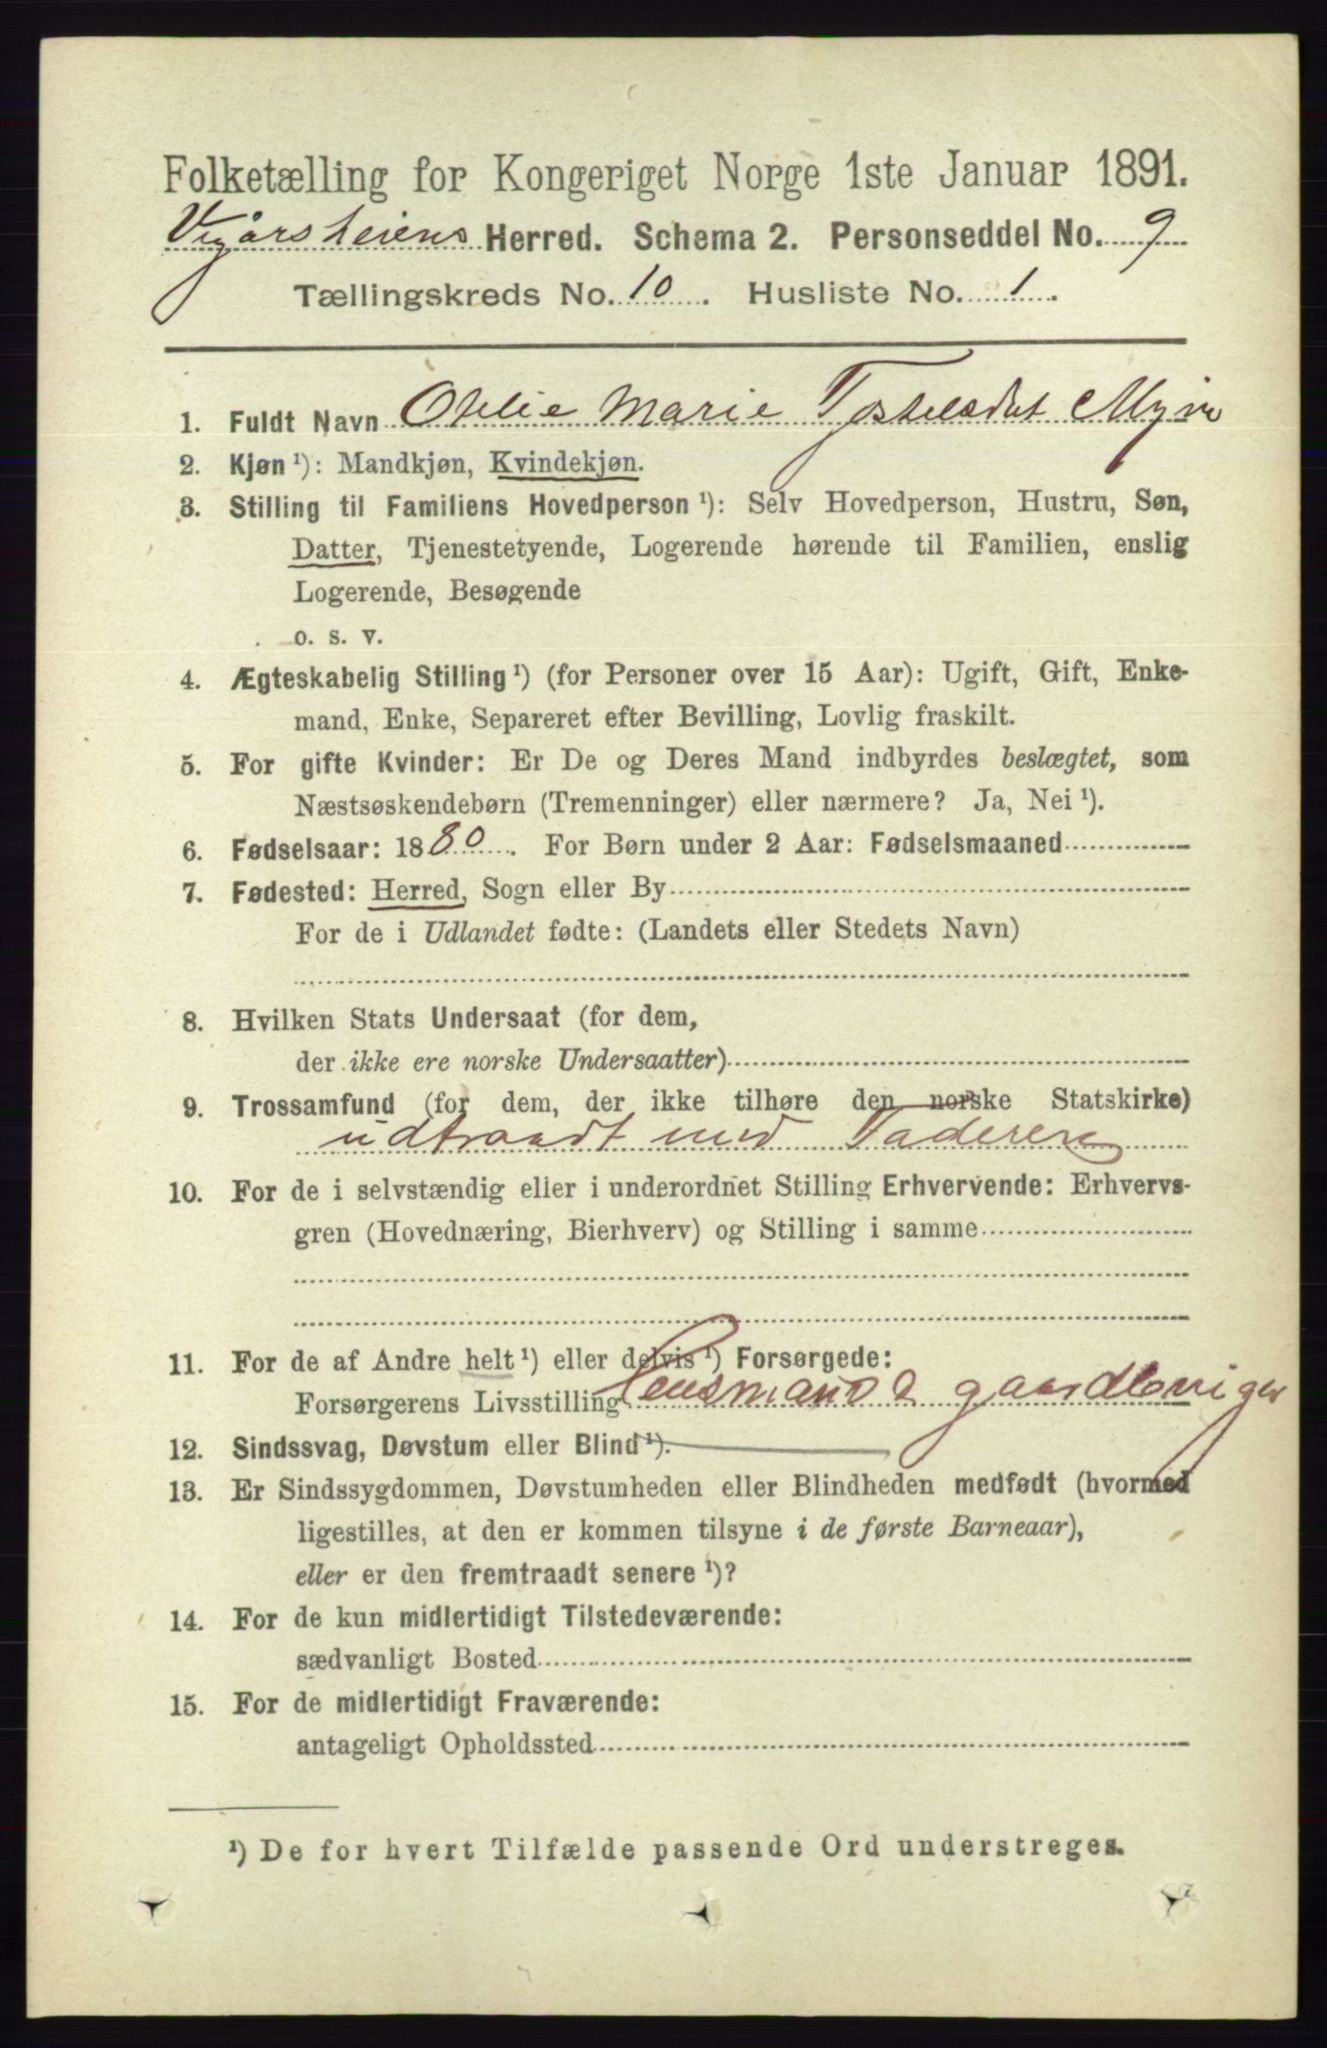 Folketælling for Kongeriget Norge 1ste Januar 1891.
Vegårsheiens Herred. Schema 2. Personseddel No. 9
Tællingskreds No. 10. Husliste No. 1.
1. Fuldt Navn Othlie Marie
2. Kjøn ¹): Mandkjøn, Kvindekjøn.
3. Stilling til Familiens Hovedperson ¹): Selv Hovedperson, Hustru, Søn,
Datter, Tjenestetyende, Logerende hørende til Familien, enslig
Logerende, Besøgende
o. s. v.
4. Ægteskabelig Stilling ¹) (for Personer over 15 Aar): Ugift, Gift, Enke-
mand, Enke, Separeret efter Bevilling, Lovlig fraskilt.
5. For gifte Kvinder: Er De og Deres Mand indbyrdes beslægtet, som
Næstsøskendebørn (Tremenninger) eller nærmere? Ja, Nei ¹).
6. Fødselsaar: 1880. For Børn under 2 Aar: Fødselsmaaned
7. Fødested: Herred, Sogn eller By
For de i Udlandet fødte: (Landets eller Stedets Navn)
8. Hvilken Stats Undersaat (for dem,
der ikke ere norske Undersaatter)
9. Trossamfund (for dem, der ikke tilhøre den norske Statskirke)
udtraadt med Faderen
10. For de i selvstændig eller i underordnet Stilling Erhvervende: Erhvervs-
gren (Hovednæring, Bierhverv) og Stilling i samme
11. For de af Andre helt ¹) eller delvis ¹) Forsørgede:
Forsørgerens Livsstilling Lensmand & gaardbruger
12. Sindssvag, Døvstum eller Blind ¹).
13. Er Sindssygdommen, Døvstumheden eller Blindheden medfødt (hvormed
ligestilles, at den er kommen tilsyne i de første Barneaar),
eller er den fremtraadt senere ¹)?
14. For de kun midlertidigt Tilstedeværende:
sædvanligt Bosted
15. For de midlertidigt Fraværende:
antageligt Opholdssted
¹) De for hvert Tilfælde passende Ord understreges.